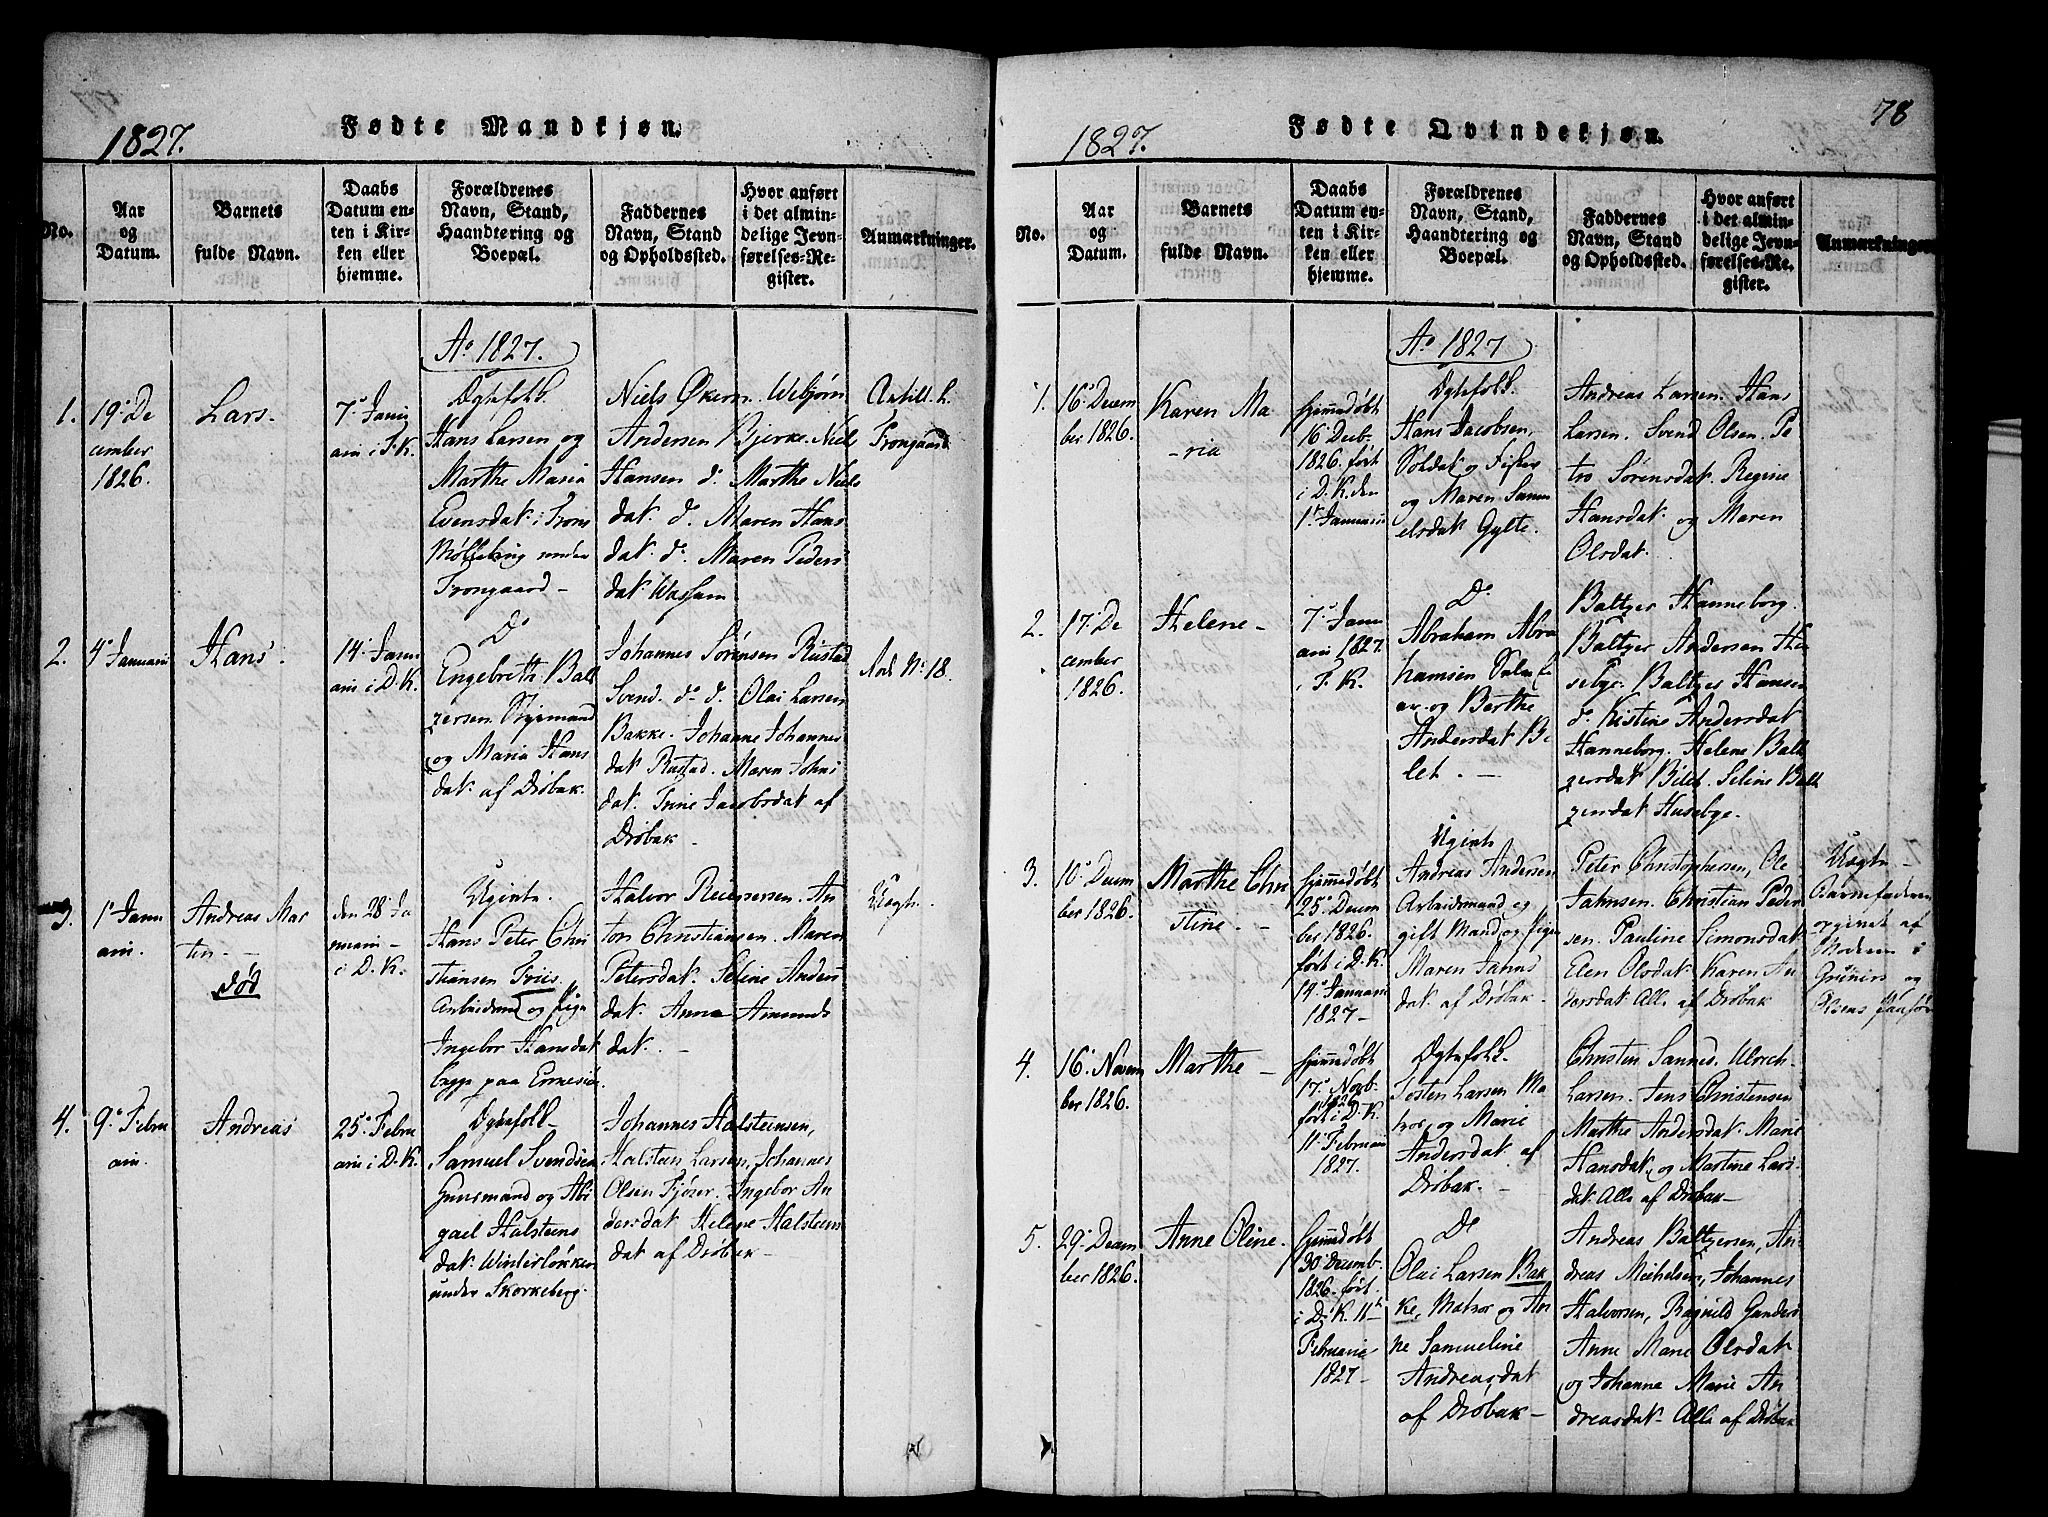 1827.
Fødte Mandkjøn.
No.
Aar
og
Datum.
Barnets
fulde Navn.
Daabs
Datum en-
ten i Kir-
ken eller
hjemme.
Forældrenes
Navn, Stand,
Haandtering og
Boepæl.
Faddernes
Navn, Stand
og Opholdssted.
Hvor anført
i det almin-
delige Jevn-
førelses-Re-
gister.
Anmærkninger.
Ao 1827.
1.
19. De
cember
1826.
Lars.
7. Janu
arii i F. K.
Ægtefolk
Hans Larsen og
Marthe Maria
Evensdat. i Frons
Mølleting under
Frongaard
Niels Økern. Webjørn
Andersen Bjerke. Niels
Hansen do. Marthe Niels
dat. do. Maren Hans
dat. do. Maren Peders
dat. Wassum
Antill. h.
Frongaard
2.
4. Januarii
Hans.
14. Janu
arii i D. K.
Do
Engebreth Balt
zersen Styrmand
og Maria Hans
dat. af Drøbak.
Johannes Sørensen Rustad
Svend do do. Olai Larsen
Bakke. Johanne Johannes
dat Rustad. Maren Johns
dat. Trine Jacobsdat af
Drøbak
No. 18.
3.
1. Janu
arii.
Andreas Mar
tin
død
den 28 Ja
nuarii
i D. K.
Ugivte.
Hans Peter Chri
stiansen Friis
Arbeidsmd og Pige
Ingebor Hansdat
begge paa
Halvor Reiersen. An
ton Christiansen. Maren
Petersdat. Seline Anders
dat. Anne Amunds
dat.
Uægte.
4.
9. Febru
arii.
Andreas
25. Febru
arii i D. K.
Ægtefolk
Samuel Svendsen
Huusmand og Abi
gael Halsteens
dat. Winterløkken
under Skorkeberg.
Johannes Halsteensen,
Halsteen Larsen, Johannes
Olsen Fjøser. Ingebor An
dersdat. Helene Halsteens
dat af Drøbak
1827.
Fødte Qvindekjøn.
78
No.
Aar
og
Datum.
Barnets
fulde Navn.
Daabs
Datum en-
ten i Kir-
ken eller
hjemme.
Forældrenes
Navn, Stand,
Haandtering og
Boepæl.
Faddernes
Navn, Stand
og Opholdssted.
Hvor anført
i det almin-
delige Jevn-
førelses-Re-
gister.
Anmærkninger
Ao 1827
1.
16. Decem
ber 1826.
Karen Ma
ria
hjemmedøbt
16 Decb.
1826.ført
i D. K. den
1. Januarii
Ægtefolk.
Hans Jacobsen,
Soldat og Fisker
og Maren Samu
elsdat. Gylte.
Andreas Larsen. Hans
Larsen. Svend Olsen. Pe
tro Sørensdat. Regine
Hansdat. og Maren
Olsdat.
2.
17. De
cember
1826.
Helene
7. Janu
arii 1827.
i F. K.
Do
Abraham Abra
hamsen
og Berthe
Andersdat Bi
let.
Baltzer Hanneborg.
Baltzer Andersen Hu
sebye. Baltzer Hansen
do. Kistine Andersdat
Hanneborg. Helene Balt
zersdat Bilet. Seline Balt
zersdat Husebye.
3.
10. Decem
ber 1826.
Marthe Chri
stine.
hjemmedøbt
25. Decem
ber 1826.
ført i D. K.
14. Januarii
1827
Ugivte
Andreas Andersen
Arbeidsmand og
gift Mand og Pigen
Maren Janns
dat. af Drøbak.
Peter Christophersen, Ole
Jahnsen. Christian Peder
sen. Pauline Simonsdat
Elen Olsdat. Karen An
dersdat. Alle af Drøbak
Uægte
Barnefaderen
opgivet af
Moderen i
og
4.
16. Novem
ber 1826.
Marthe
hjemmedøbt
17. Novb.
1826
ført i D. K.
11. Februarii
1827.
Ægtefolk.
Tosten Larsen Ma
tros, og Marie
Andersdat. af
Drøbak.
Christen Sannes. Ulrich
Larsen. Jens Christensen
Marthe Andersdat. Marie
Hansdat, og Martine Lars
dat. Alle af Drøbak
5.
29. Decem
ber 1826.
Anne Oline.
hjemmedøbt
30. Decemb.
1826. ført
i D. K. 11te
Februarie
1827
Do
Olai Larsen Bak
ke, Matros og An
ne Samueline
Andreasdat
af Drøbak
Andreas Baltzersen, An
dreas Michelsen, Johannes
Halvorsen, Ragnild Gunders
Anne Marie Olsdat
og Johanne Marie An
dreasdat. Alle af Drøbak